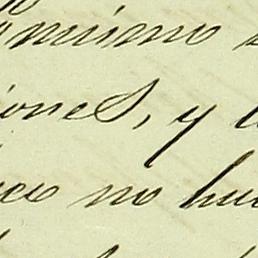 mismo
iones, y
ico no hu